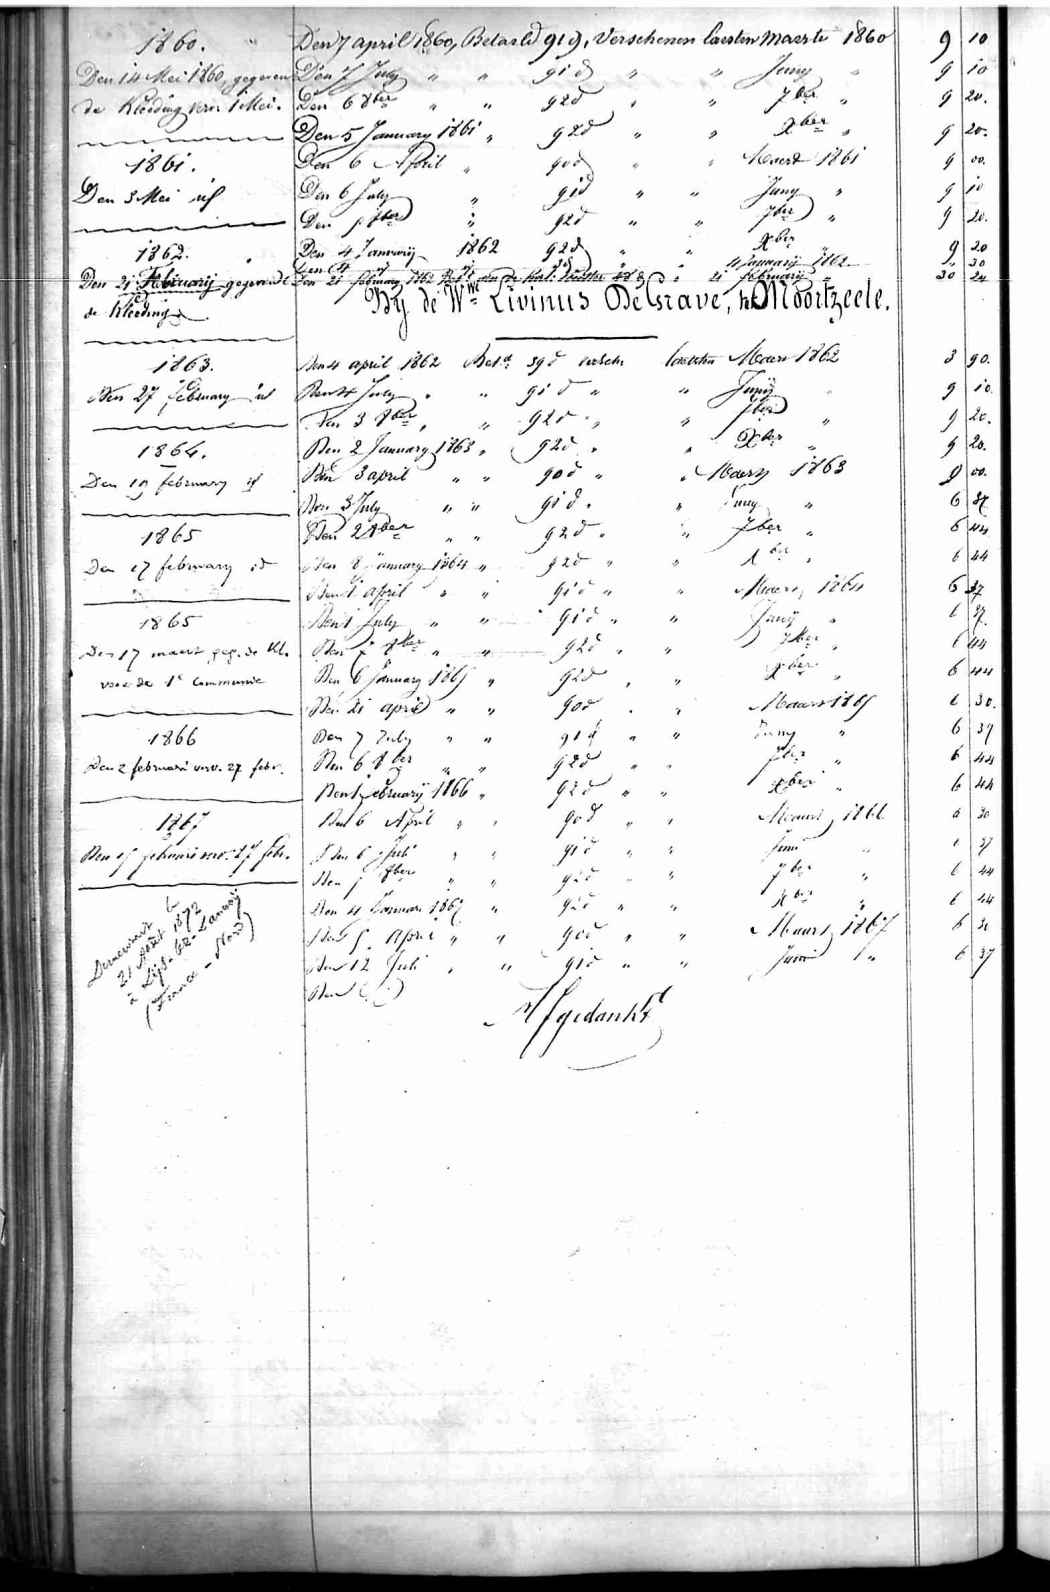 1860.
Den 14 Mei 1860, gegeven
de Kleeding verv. 1 Mei.
1861.
Den 3 Mei id
1862.
Den 21 Februarij gegeven de
de Kleeding
1863.
Den 27 february id
1864.
Den 19 february id
1865
Den 17 february id
1865
Den 17 maert geg. de Kl.
voor de 1e Communie
1866
Den 2 februari verv. 27 febr.
1867
Den 15 februari verv. 27 febr.
Demeurant le
21 Août 1872
à Lijs-lez-Lannoij
(France - Nord)
Den 7 april 1860, Betaeld 91 d, Verschenen laesten Maerte 1860 9 10
Den 7 July " " 91 d " " Juny " 9 10
Den 6 8ber " " 92 d " " 7ber " 9 20.
Den 5 January 1861 " 92 d " " Xber " 9 20.
Den 6 April " 90 d " " Maert 1861 9 00.
Den 6 July " 91 d " " Juny " 9 10
Den 5 8ber " 92 d " " 7ber " 9 20.
Den 4 Januarij 1862 92 d " " Xber " 9 20
Den 4 " " 3 d " " 4 Januarij 1862 " 30
Den 21 february 1862 " " 21 februarij " 30 24
Bij de We Livinus De Grave, te Moortzeele.
Den 4 april 1862 Betd 39 d versch. laesten Maert 1862 3 90.
Den 4 July " " 91 d " " Junij " 9 10.
Den 3 8ber " " 92 d " " 7ber " 9 20.
Den 2 January 1863 " 92 d " " Xber " 9 20.
Den 3 april " " 90 d " " Maert 1863 9 00.
Den 3 July " " 91 d " " Juny " 6 37
Den 2 8ber " " 92 d " " 7ber " 6 44
Den 8 January 1864 " 92 d " " Xber " 6 44
Den 1 april " " 91 d " " Maert 1864 6 37
Den 1 July " " 91 d " " Junij " 6 37
Den 7 8ber " " 92 d " " 7ber " 6 44
Den 6 January 1865 " 92 d " " Xber " 6 44
Den 21 april " " 90 d " " Maert 1865 6 30.
Den 7 July " " 91 d " " Juny " 6 37
Den 6 8ber " " 92 d " " 7ber " 6 44
Den 1 februarij 1866 " 92 d " " Xber " 6 44
Den 6 April " " 90 d " " Maart 1866 6 30
Den 6 Juli " " 91 d " " Juni " 6 37
Den 5 8ber " " 92 d " " 7ber " 6 44
Den 4 Januari 1867 " 92 d " " Xber " 6 44
Den 5 April " " 90 d " " Maart 1867 6 30
Den 12 Juli " " 91 d " " Juni " 6 37
Den
Afgedankt